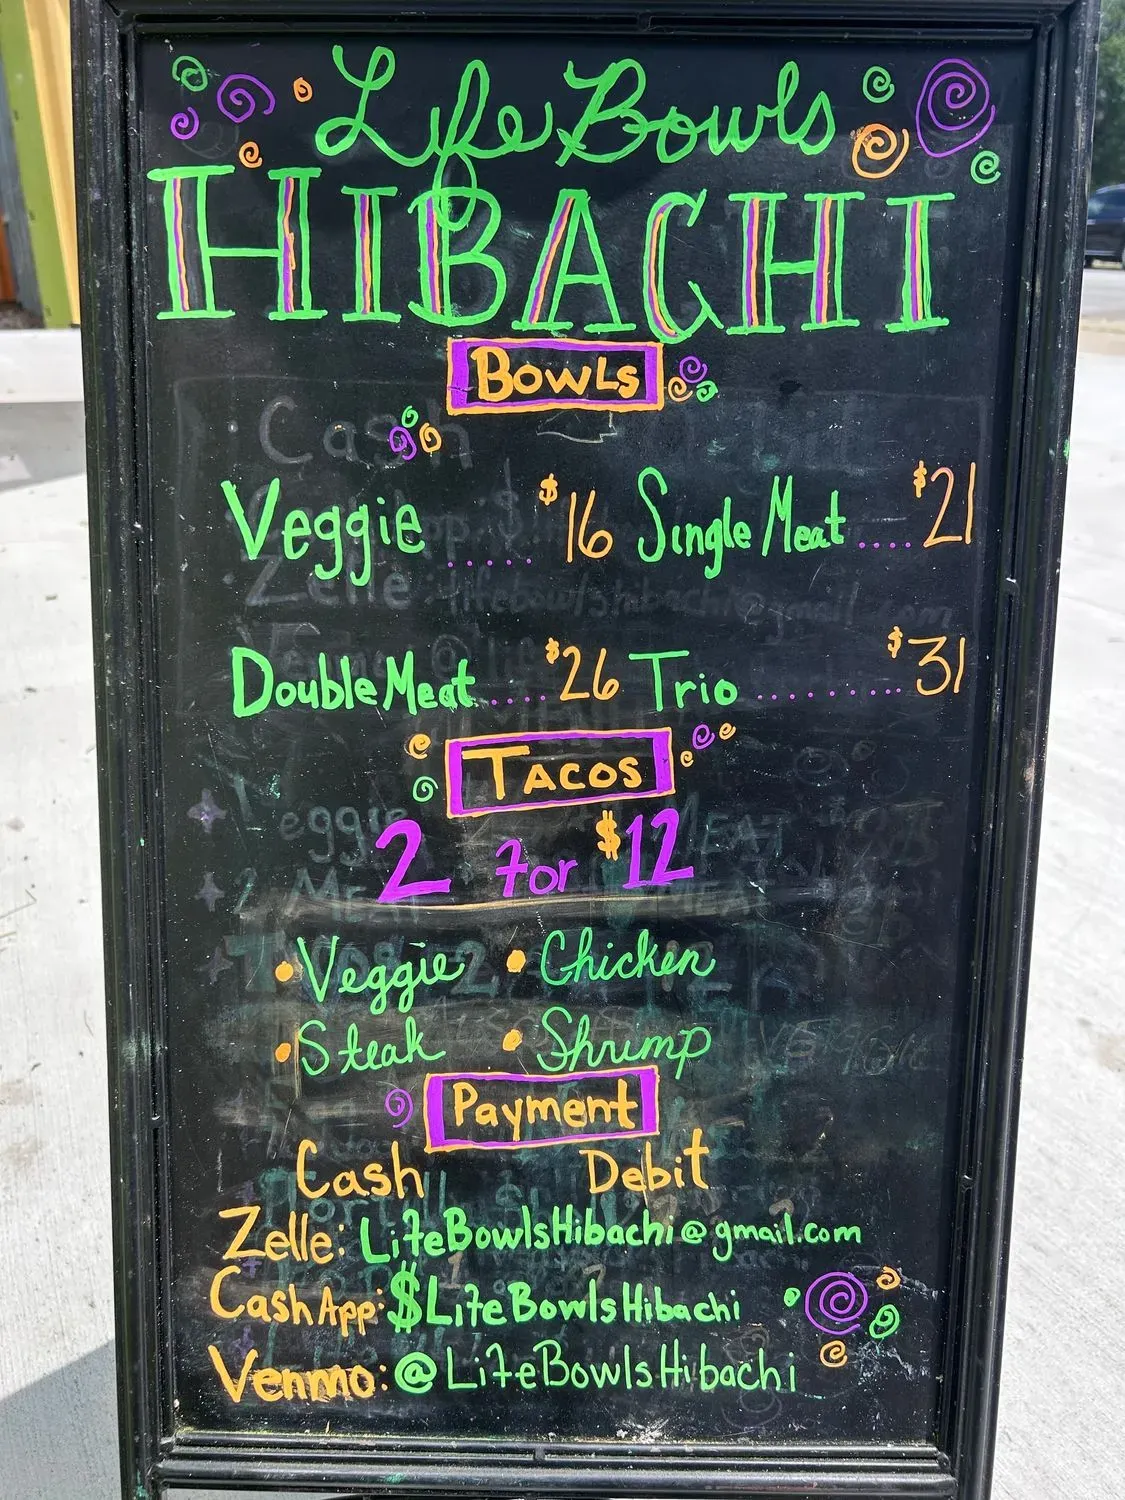 Life Bowls
HIBACHI
BOWLS
Veggie ...... $16 Single Meat .... $21
Double Meat .... $26 Trio .......... $31
TACOS
2 for $12
• Veggie • Chicken
• Steak • Shrimp
Payment
Cash Debit
Zelle: LifeBowlsHibachi@gmail.com
CashApp: $LifeBowlsHibachi
Venmo: @LifeBowlsHibachi